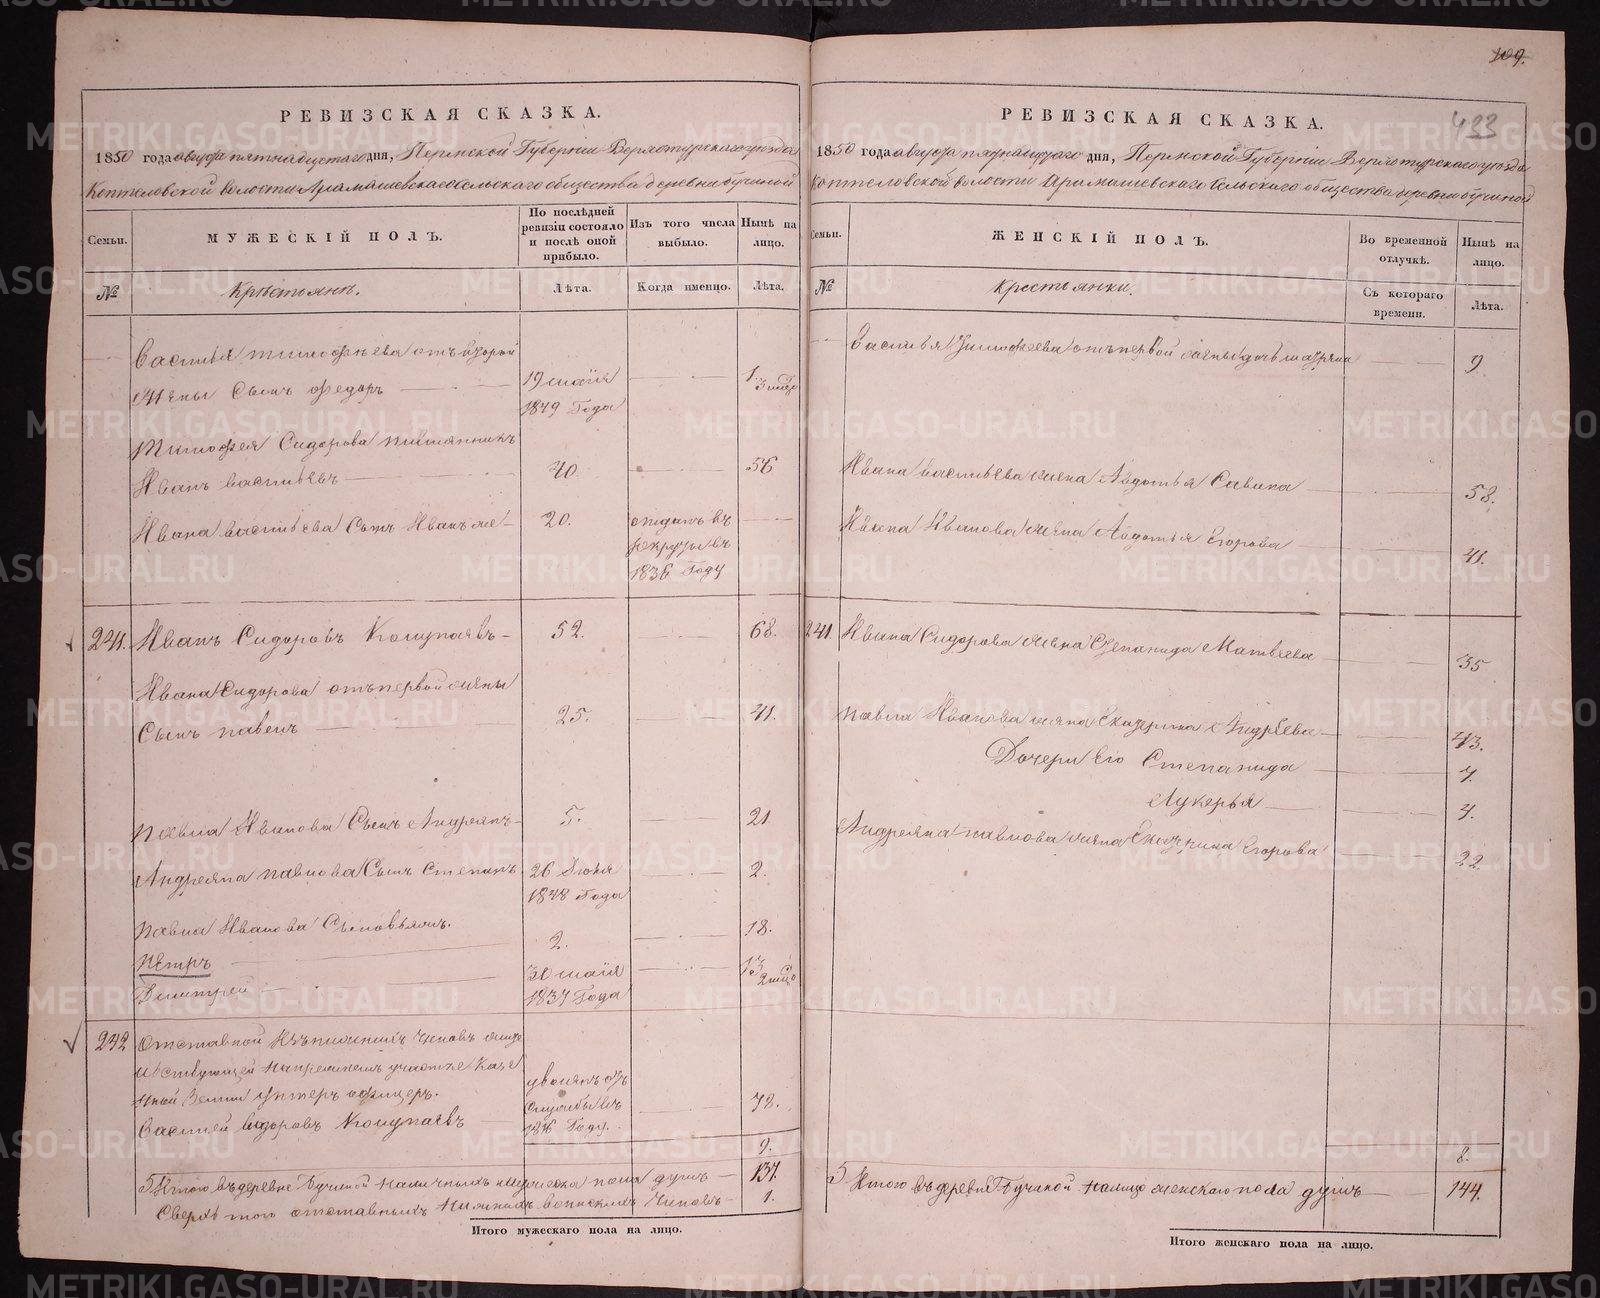 109.
433
РЕВИЗСКАЯ СКАЗКА.
1850 года августа пятнадцатаго дня, Пермской Губернии Верхотурскаго уезда
Коптеловской волости Арамашевскаго сельскаго общества деревни Бучиной
Семьи.
МУЖЕСКІЙ ПОЛЪ.
По послѣдней ревизіи состояло и послѣ оной прибыло.
Изъ того числа выбыло.
Нынѣ на лицо.
№
Крестьянъ.
Лѣта.
Когда именно.
Лѣта.
Василья Тимофѣева отъ второй
жены Сынъ Федоръ 19 маія 1849 Года 1 3 мѣс
Тимофея Сидорова племянникъ
Иванъ Васильевъ 40. 56
Ивана Васильева Сынъ Иванъ же 20. отданъ въ рекруты въ 1836 Году
241. Иванъ Сидоровъ Кошупаевъ 52. 68.
Ивана Сидорова отъ первой жены
Сынъ Павелъ 25. 41.
Павла Иванова Сынъ Андреянъ 5. 21
Андреяна Павлова Сынъ Степанъ 26 Іюля 1848 Года 2.
Павла Иванова Сыновья
Петръ 2. 18.
Дмитрей 30 маія 1837 Года 13 2 мѣс
242 Отставной изъ нижнихъ чиновъ
казен
ной Земли Унтеръ офицеръ.
Василей Сидоровъ Кошупаевъ уволенъ отъ службы въ 1816 Году. 78.
9.
Итого въ деревне Бучиной наличныхъ мужеска пола душъ 137.
Сверхъ того отставныхъ нижнихъ воинскихъ чиновъ 1.
Итого мужескаго пола на лицо.
РЕВИЗСКАЯ СКАЗКА.
1850 года августа пятнадцатаго дня, Пермской Губерніи Верхотурскаго уезда
Коптеловской волости Арамашевскаго сельскаго общества деревни Бучиной
Семьи.
ЖЕНСКІЙ ПОЛЪ.
Во временной отлучкѣ.
Нынѣ на лицо.
№
Крестьянки.
Съ котораго времени.
Лѣта.
Василья Тимофеева отъ первой жены дочь Марина 9
Ивана Васильева жена Авдотья Савина 58.
Ивана Иванова жена Авдотья Егорова 41.
241. Ивана Сидорова жена Степанида Матвеева 35
Павла Иванова жена Екатерина Андреева 43.
Дочери Его Степанида 7.
Лукерья 4.
Андреяна Павлова жена Екатерина Егорова 22.
8.
Итого въ деревне Бучиной налицо женскаго пола душъ 144.
Итого женскаго пола на лицо.